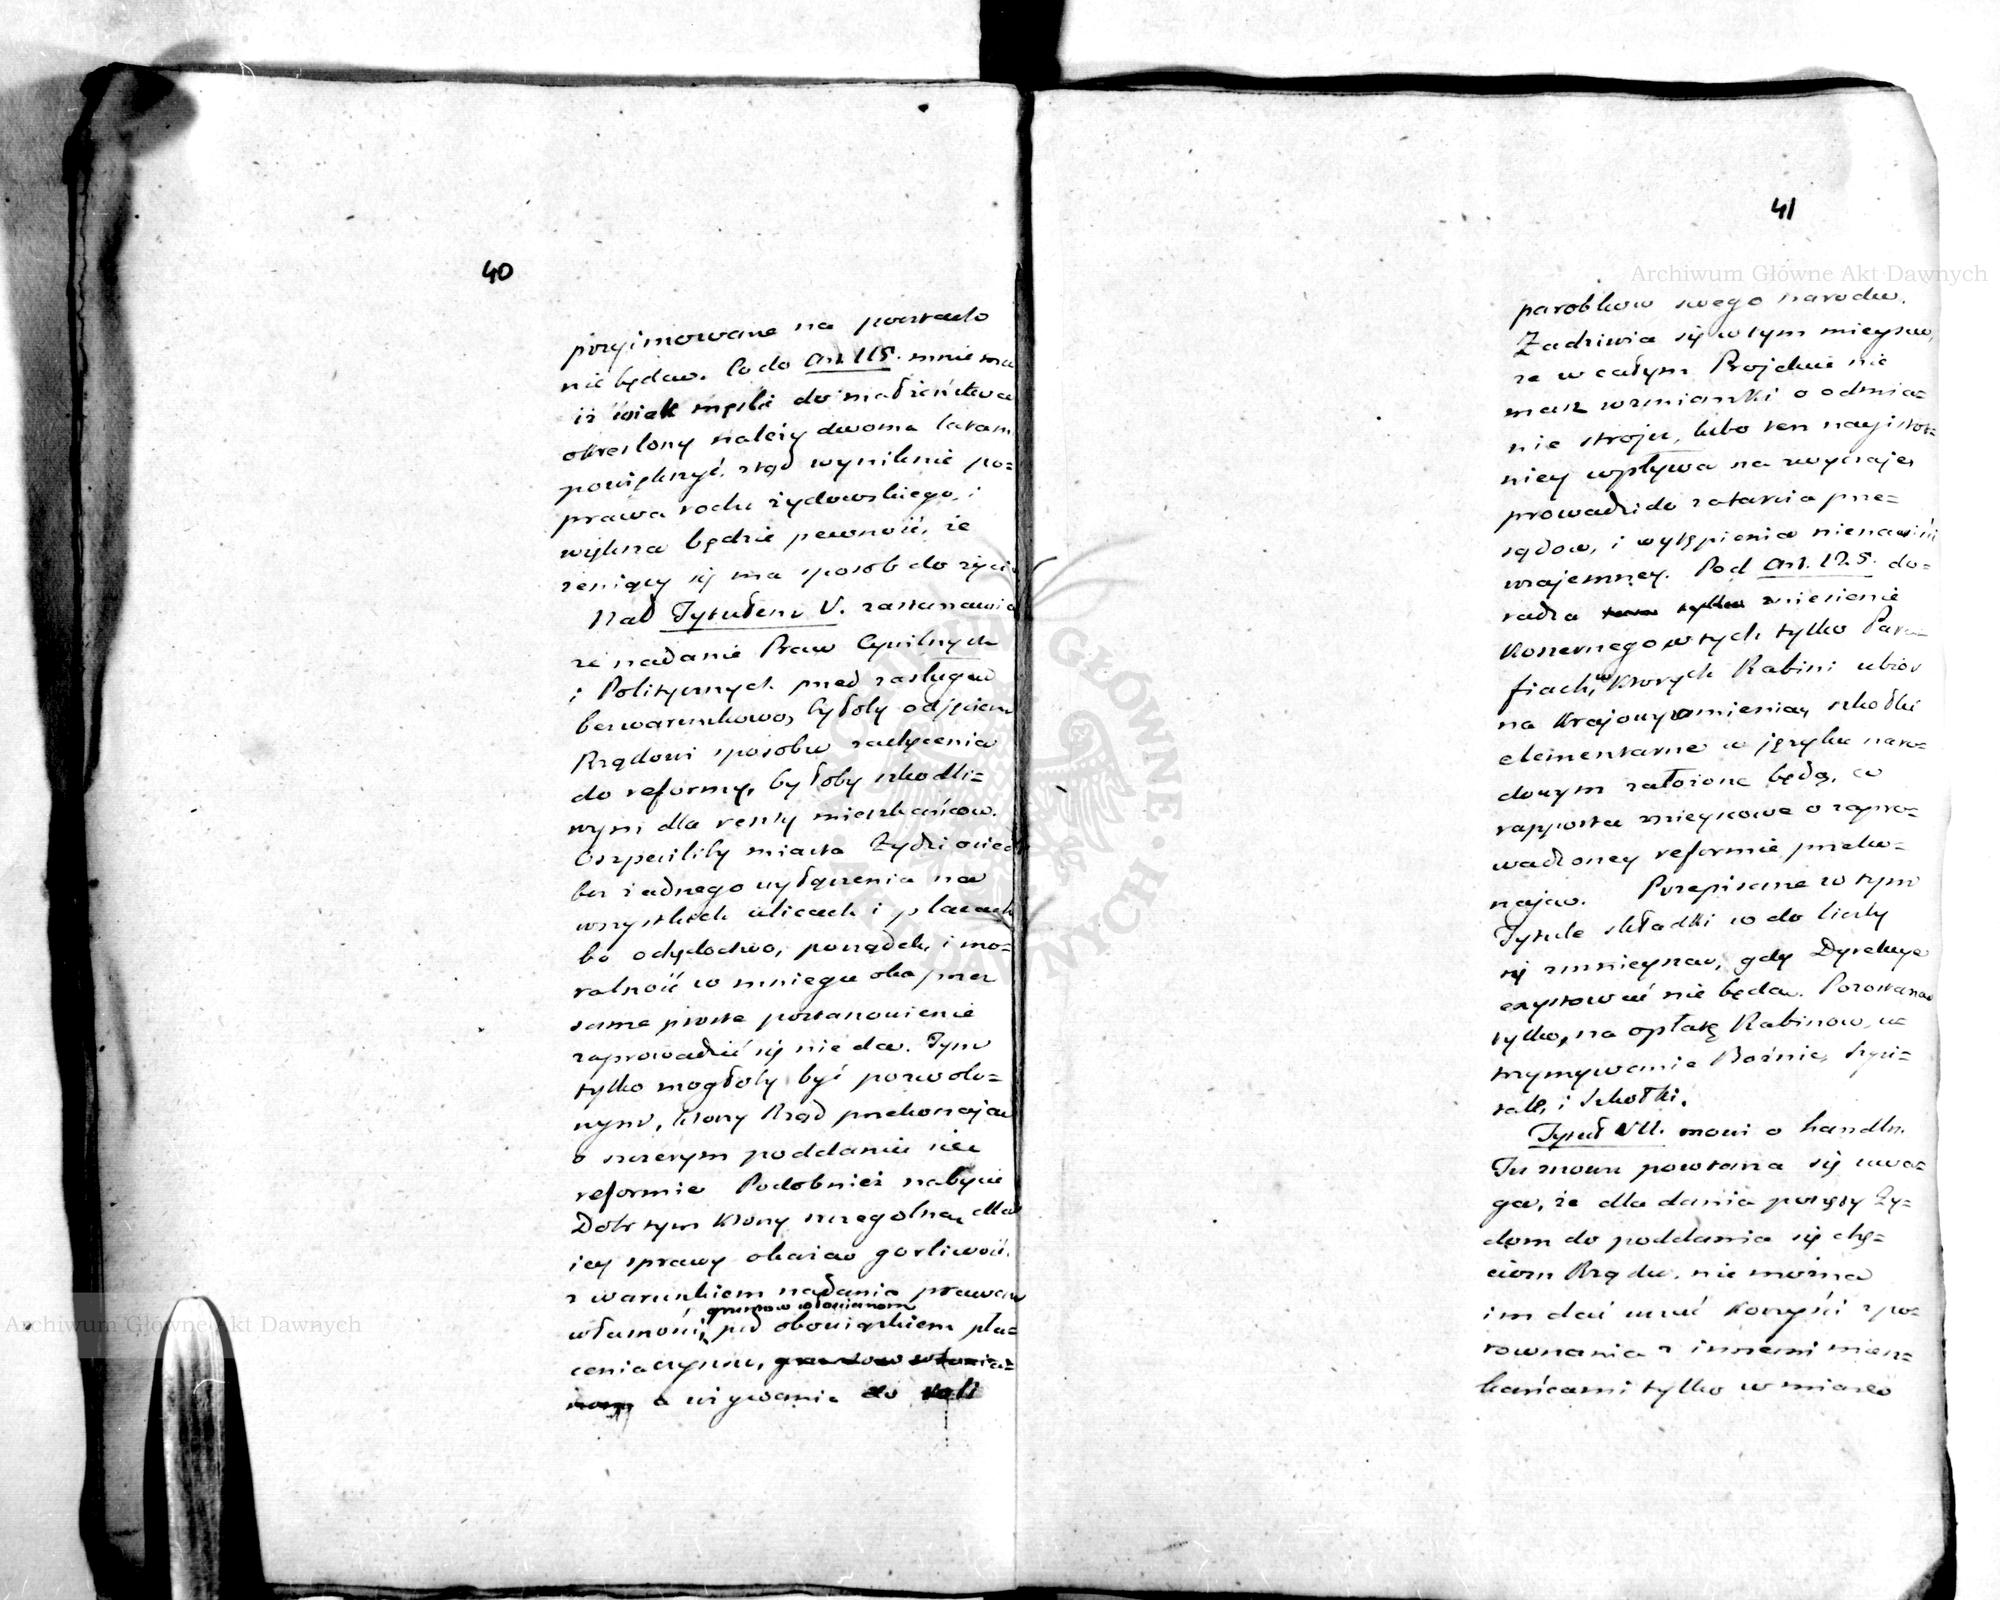 40
przyimowane na powrado
nie będą. Co do Art. 115. mniema
iż wiek męski do małżeństwa
okreslony należy dwoma latam
powiększyć, stąd wyniknie po=
prawa rodu żydowskiego, i
większa będzie pewność, że
żeniący się ma sposób do życia
Nad Tytułem V. zastanawia
że nadanie Praw Cywilnych
i Politycznych przed zasługą
bezwarunkowo, byłoby odjęciem
Rządowi sposobu zachęcenia
do reformy, byłoby szkodli=
wym dla reszty mieszkańcow.
Oszpeciliby miasta Żydzi osiedli
bez żadnego wyłączenia na
wszystkich ulicach i placach
bo ochędostwo, porządek, i mo=
ralność w mnieniu oka przez
same proste postanowienie
zaprowadzić się nie da. Tym
tylko mogłoby być pozwolo=
nym, ktory Rząd przekonają
o szczerym poddaniu się
reformie Podobnież nabycie
Dobr tym ktory szczegolną dla
iey sprawy okażą gorliwość.
z warunkiem nadania prawa
gruntow włościanom
własności, pod obowiązkiem pła=
cenia czynszu, gruntow włościa=
nom a używania do roli
41
parobkow swego narodu.
Zadziwia się w tym mieyscu,
że w całym Projekcie nie
masz wzmianki o odmia=
nie stroju, lubo ten nayistot=
niey wpływa na zwyczaje,
prowadzi do zatarcia prze=
sądow, i wytępienia nienawiści
wzajemney. Pod Art. 125. do=
radza tylko zniesienie
Koszernego w tych tylko Para=
fiach, w ktorych Rabini ubior
na Krajowy zmienią, szkołki
elementarne w języku naro=
dowym założone będą, co
rapporta mieyscowe o zapro=
wadzoney reformie przeko=
nają. Przepisane w tym
Tytule składki w do liczby
się zmnieyszą, gdy Dyrekcye
exystować nie będą. Pozostaną
tylko, na opłatę Rabinow, u=
trzymywanie Bożnic, Szpi=
tale, i Szkołki.
Tytuł VII. mowi o handlu.
Tu znowu powtarza się uwa=
ga, że dla dania ponęty Ży=
dom do poddania się chę=
ciom Rządu, nie można
im dać uczuć korzyści zpo=
rownania z innemi miesz=
kańcami tylko w miarę
Archiwum Główne Akt Dawnych
Archiwum Główne Akt Dawnych